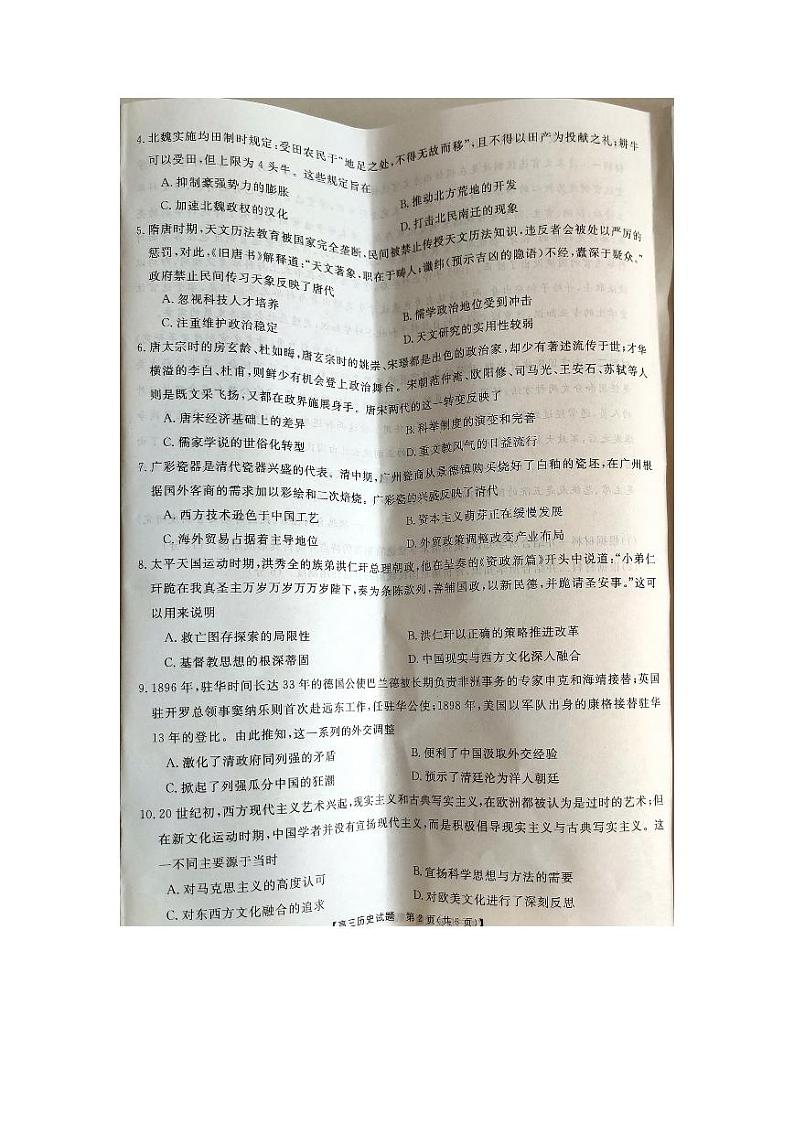 4. 北魏实施均田制时规定:受田农民于“地足之处,不得无故而移”,且不得以田产为投献之礼;耕牛
可以受田,但上限为4头牛。这些规定旨在
A. 抑制豪强势力的膨胀
B. 推动北方荒地的开发
C. 加速北魏政权的汉化
D. 打击北民南迁的现象
5. 隋唐时期,天文历法教育被国家完全垄断,民间被禁止传授天文历法知识,违反者会被处以严厉的
惩罚,对此,《旧唐书》解释道:“天文著象,职在于畴人;谶纬(预示吉凶的隐语)不经,蠹深于疑众。”
政府禁止民间传习天象反映了唐代
A. 忽视科技人才培养
B. 儒学政治地位受到冲击
C. 注重维护政治稳定
D. 天文研究的实用性较弱
6. 唐太宗时的房玄龄、杜如晦,唐玄宗时的姚崇、宋璟都是出色的政治家,却少有著述流传于世;才华
横溢的李白、杜甫,则鲜少有机会登上政治舞台。宋朝范仲淹、欧阳修、司马光、王安石、苏轼等人
则是既文采飞扬,又都在政界施展身手。唐宋两代的这一转变反映了
A. 唐宋经济基础上的差异
B. 科举制度的演变和完善
C. 儒家学说的世俗化转型
D. 重文教风气的日益流行
7. 广彩瓷器是清代瓷器兴盛的代表。清中期,广州瓷商从景德镇购买烧好了白釉的瓷坯,在广州根
据国外客商的需求加以彩绘和二次焙烧。广彩瓷的兴盛反映了清代
A. 西方技术逊色于中国工艺
B. 资本主义萌芽正在缓慢发展
C. 海外贸易占据着主导地位
D. 外贸政策调整改变产业布局
8. 太平天国运动时期,洪秀全的族弟洪仁玕总理朝政,他在呈奏的《资政新篇》开头中说道:“小弟仁
玕跪在我真圣主万岁万岁万万岁陛下,奏为条陈款列,善辅国政,以新民德,并跪请圣安事。”这可
以用来说明
A. 救亡图存探索的局限性
B. 洪仁玕以正确的策略推进改革
C. 基督教思想的根深蒂固
D. 中国现实与西方文化深入融合
9. 1896年,驻华时间长达33年的德国公使巴兰德被长期负责非洲事务的专家申克和海靖接替;英国
驻开罗总领事窦纳乐则首次赴远东工作,任驻华公使;1898年,美国以军队出身的康格接替驻华
13年的登比。由此推知,这一系列的外交调整
A. 激化了清政府同列强的矛盾
B. 便利了中国汲取外交经验
C. 掀起了列强瓜分中国的狂潮
D. 预示了清廷沦为洋人朝廷
10. 20世纪初,西方现代主义艺术兴起,现实主义和古典写实主义,在欧洲都被认为是过时的艺术;但
在新文化运动时期,中国学者并没有宣扬现代主义,而是积极倡导现实主义与古典写实主义。这
一不同主要源于当时
A. 对马克思主义的高度认可
B. 宣扬科学思想与方法的需要
C. 对东西方文化融合的追求
D. 对欧美文化进行了深刻反思
【高三历史试题 第2页(共6页)】